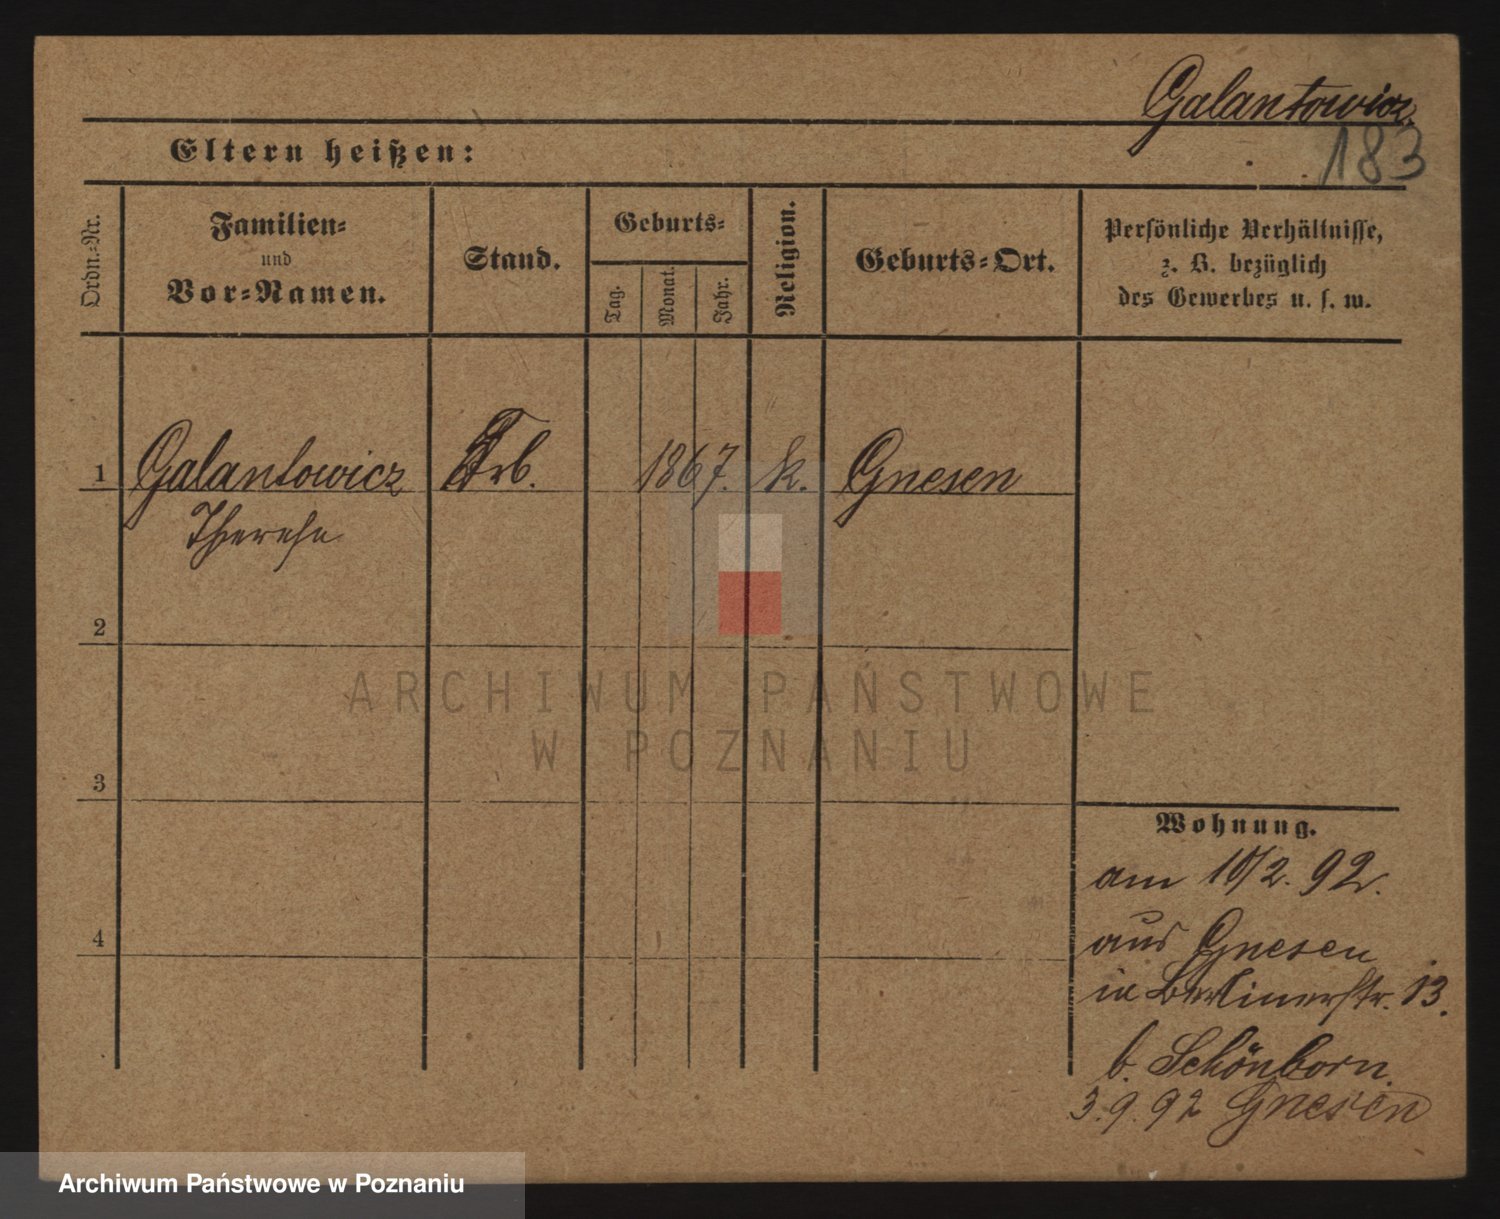 Galantowicz
183
Eltern heißen:
Ordn.-Nr.
Familien-
und
Vor-Namen.
Stand.
Geburts-
Tag.
Monat.
Jahr.
Religion.
Geburts-Ort.
Persönliche Verhältnisse,
z. B. bezüglich
des Gewerbes u. s. w.
1 Galantowicz Arb. 1867. k. Gnesen
Therese
2
3
4
Wohnung.
am 10/2. 92.
aus Gnesen
in Berlinerstr. 13.
b. Schönborn.
3.9.92 Gnesen
ARCHIWUM PAŃSTWOWE
W POZNANIU
Archiwum Państwowe w Poznaniu